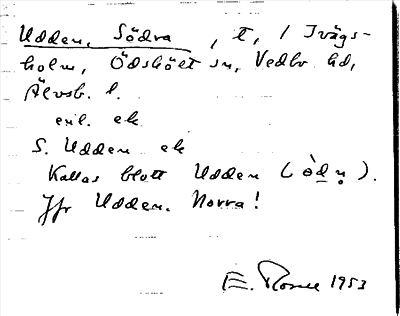 Udden, Södra, t, / Ivägs-
holm, Ödskölt sn, Vedbo hd,
Älvsb. l.
enl. ek
S. Udden ek
Kallas blott Udden (òdṇ).
Jfr Udden. Norra!
E. 1953